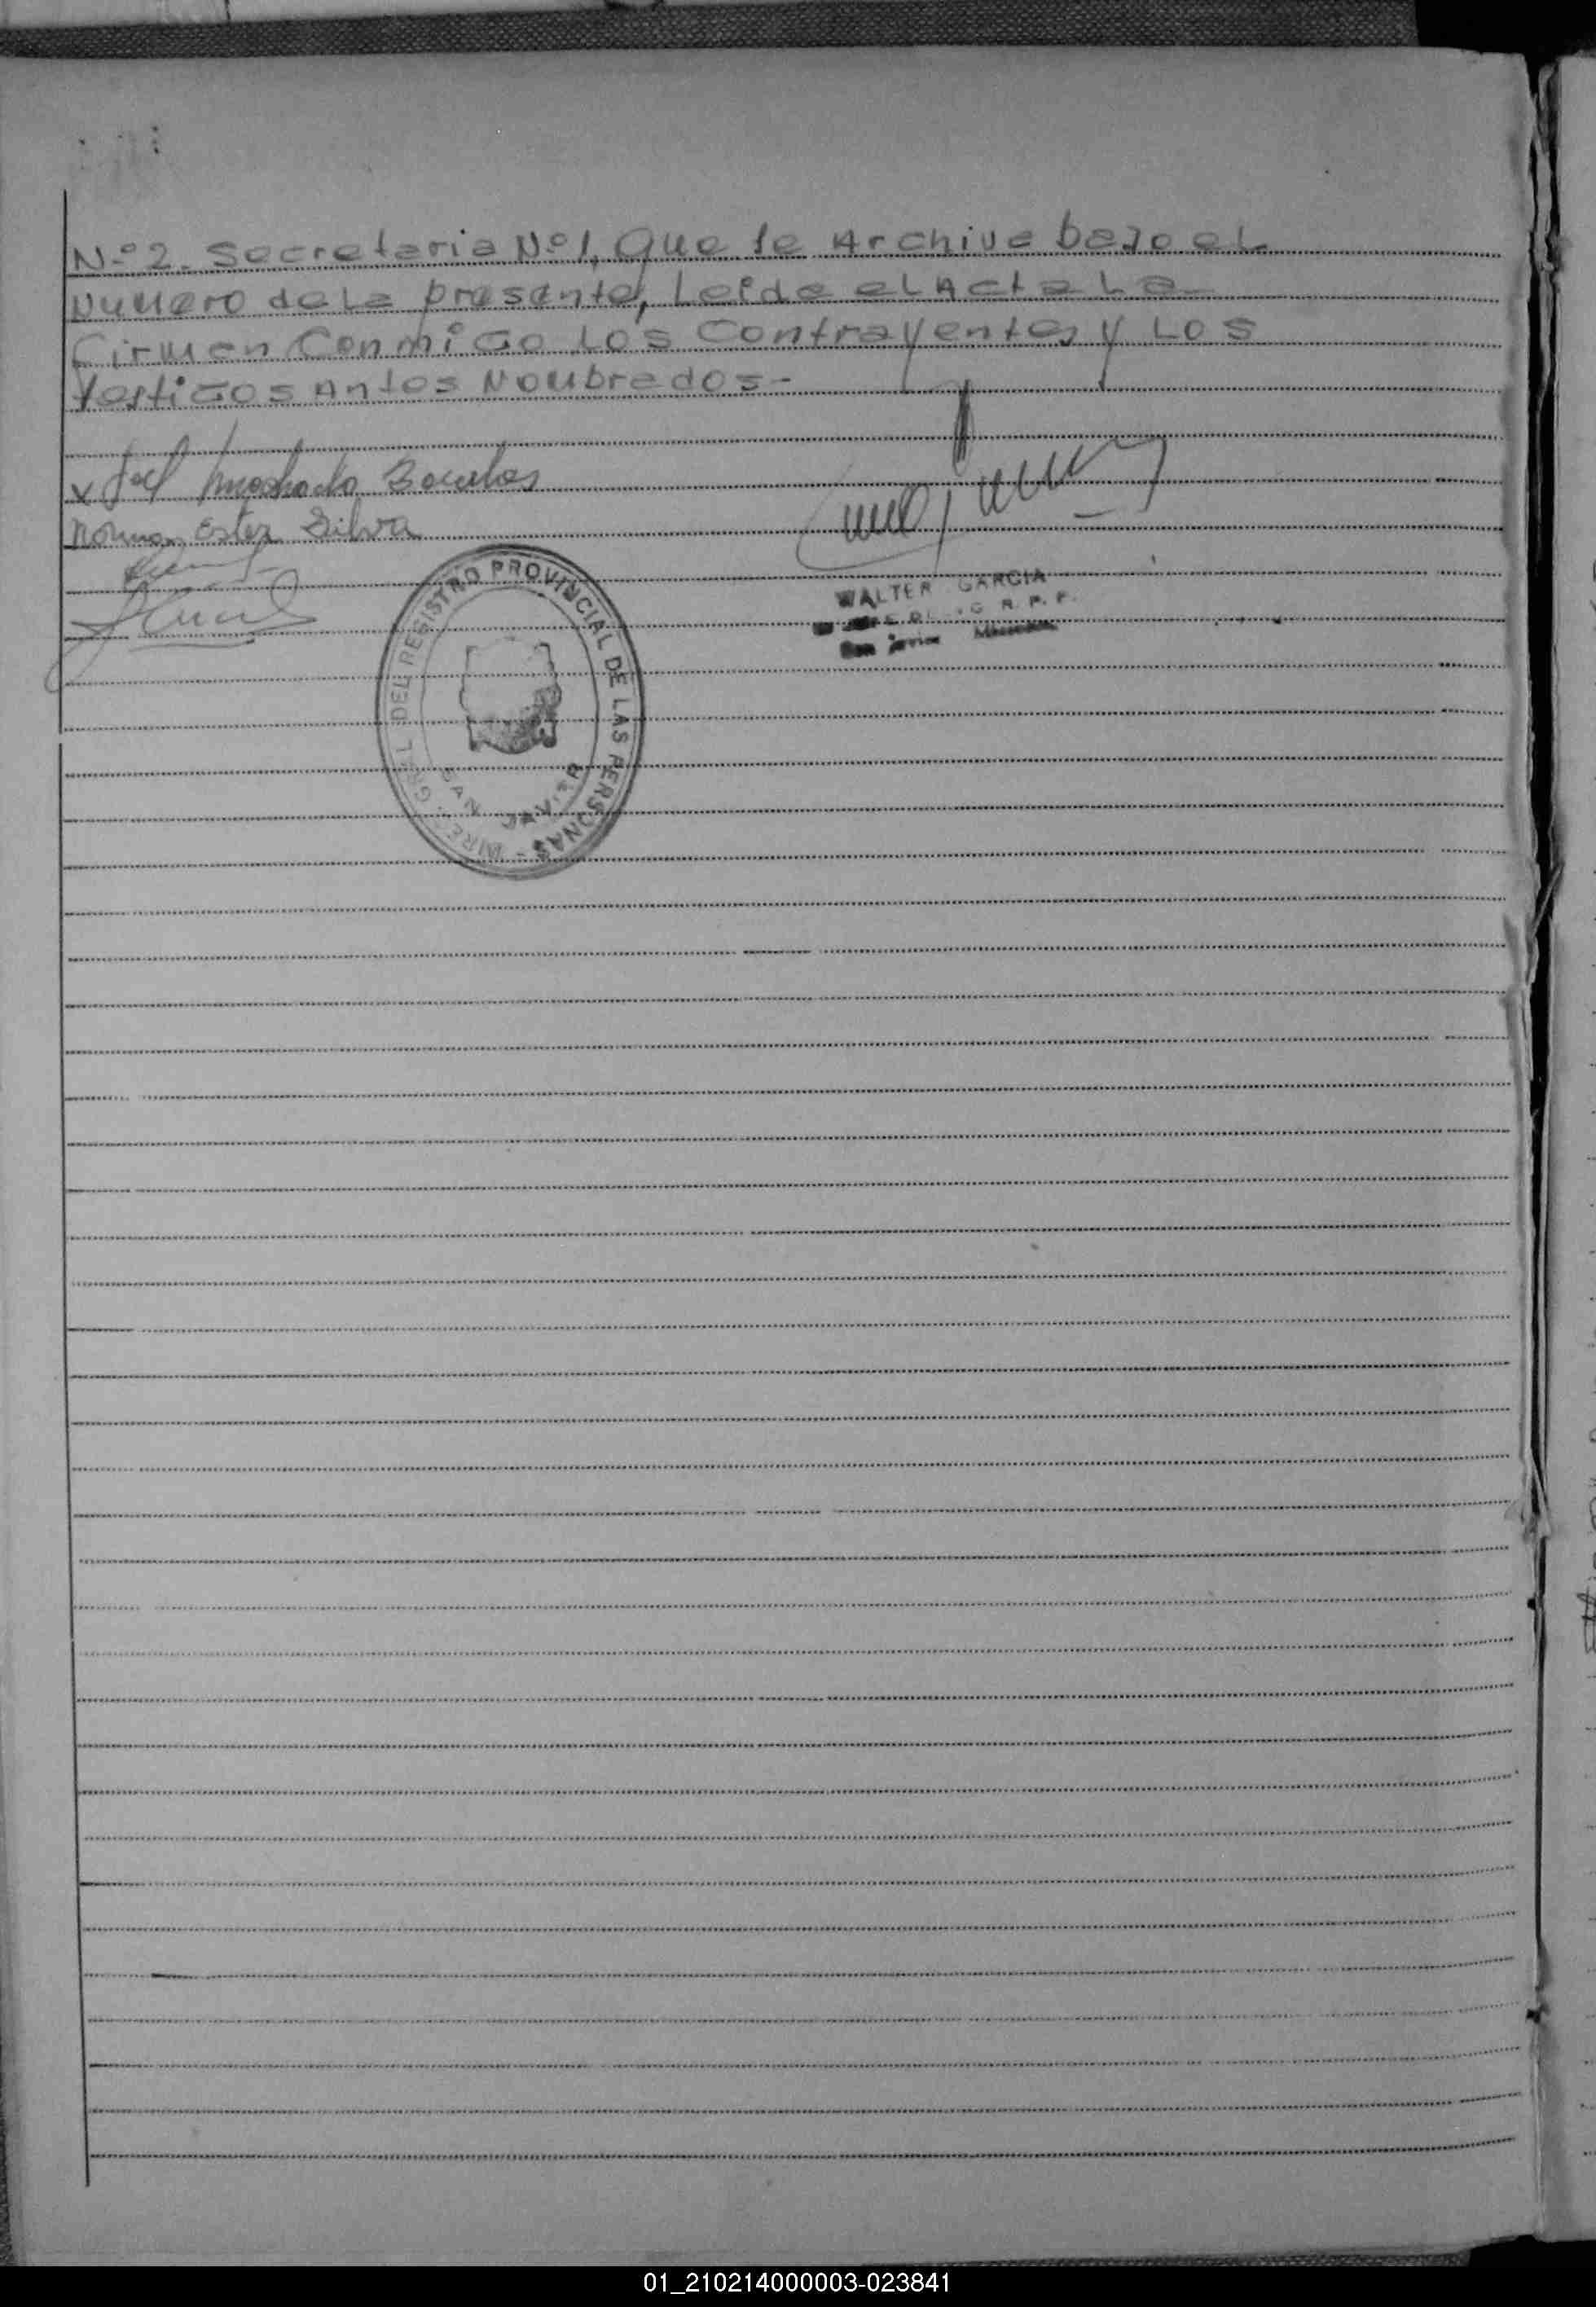 Nº2. Secretaria Nº1, Que se Archive bajo el
Numero de la presente, Leida el Acta La
firman Conmigo Los Contrayentes y Los
testigos Antes Nombrados-
x Machado
Norma Ester Silva
DEL REGISTRO PROVINCIAL DE LAS PERSONAS
SAN JAVIER
WALTER GARCIA
R. P. P.
San Javier Misiones
01_210214000003-023841